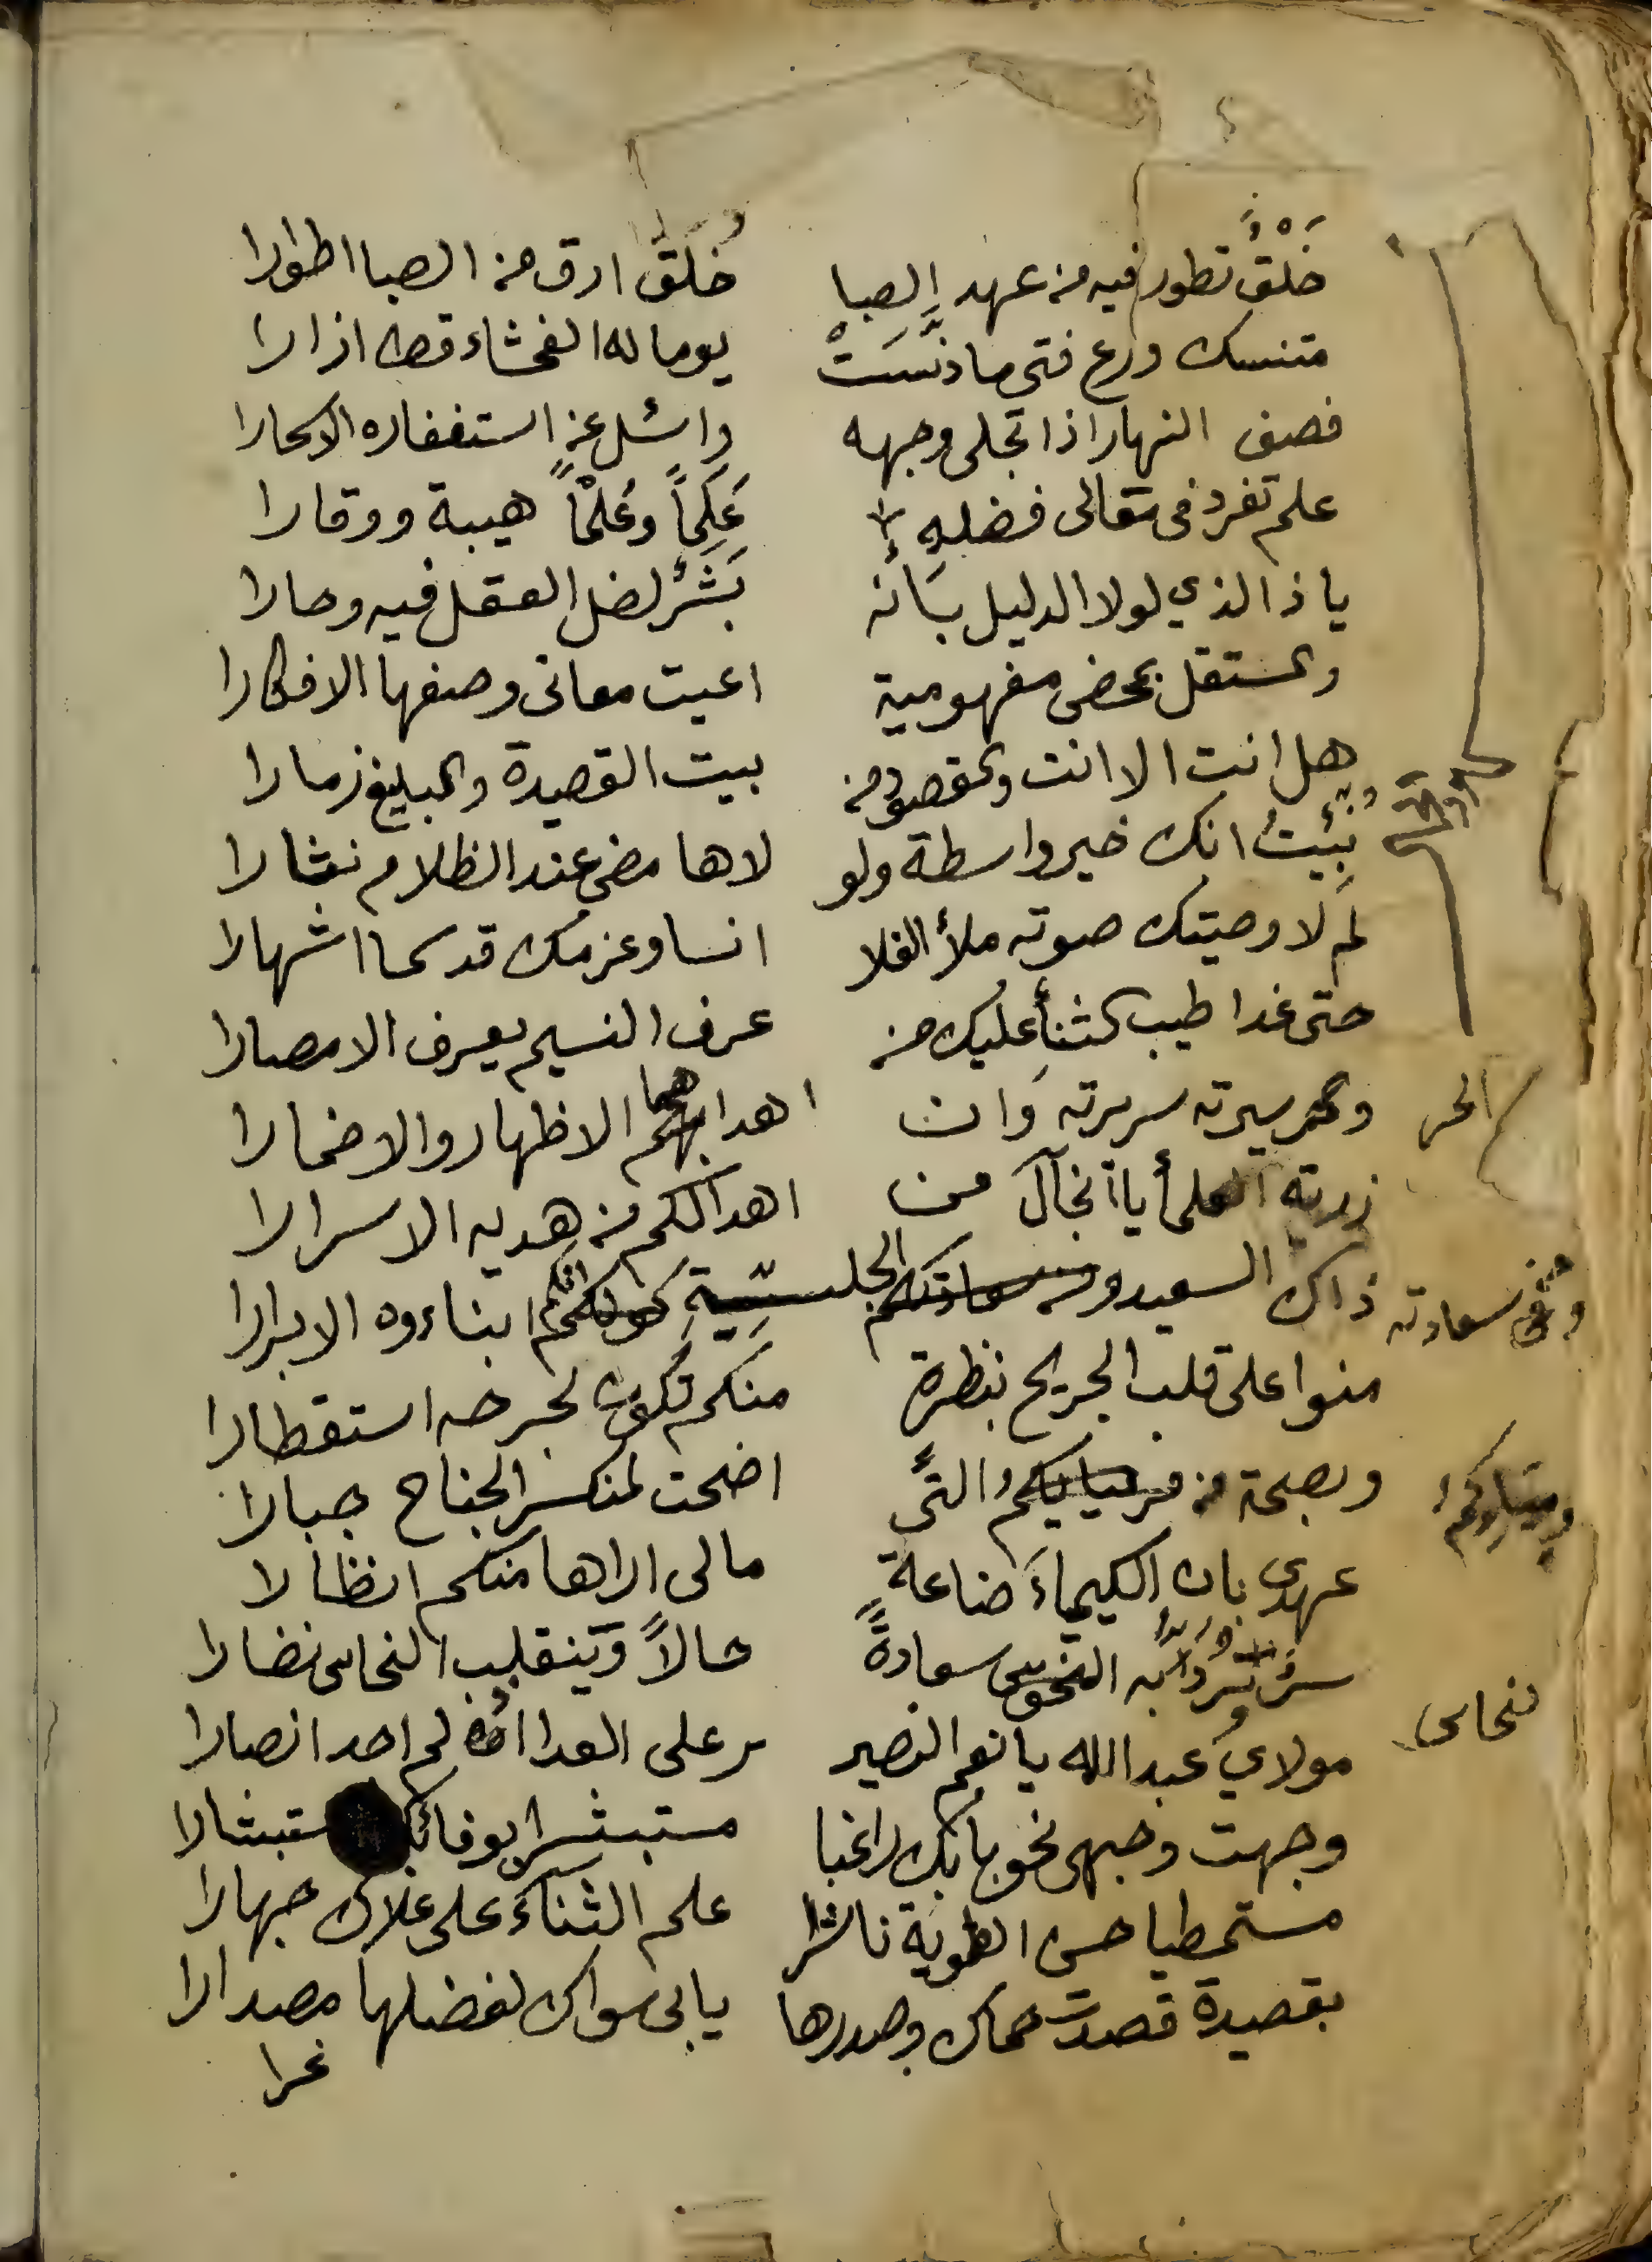 خَلْقٌ تطور فيه من عهد الصبا خُلَقٌ ارق من الصبا اطوارا
متنسك ورع فتى ما دنَّسَتْ يوما له الفحشاء قط ازارا
فصف النهار اذا تجلى وجهه واسئل عن استغفاره الاسحارا
علم تفرد في تعالى فضله عَلَماً وعُلْماً هيبة ووقارا
يا ذا الذي لولا الدليل بأنه بَشَرٌ لضل العقل فيه وحارا
والمستقل بمحض مفهومية اعيت معانى وصفها الافكارا
هل انت الا انت والمقصود من بيت القصيدة والمبلغ زمارا
نُبِّئتُ انك خير واسطة ولو لاها مضى عند الظلام نثارا
لِمَ لا وصيتك صوته ملأ الفلا انسا وعزمك قد سما اشهارا
حتى غدا طيب الثنأ عليك من عرف النسيم يعرف الامصارا
الحر
سيرته سريرته وان اهدا بهما الاظهار والاضمارا
زرته يا انجال من اهدا لكم من هديه الاسرارا
ذاك السعيد ومن سعادته الجلية انكم ابناءوه الابرارا
منوا على قلب الجريح بنظرة منكم تكون لجرحه استقطارا
وبصحة من التي اضحت لمنكسر الجناح جبارا
عهدي بان الكيمياء صناعة مالى اراها منكم انظارا
سر به النحوس سعادةً حالاً وينقلب النحاس نضارا
نحاس
مولاي عبدالله يا نعم النصير ر على العدا لم اجد انصارا
وجهت وجهى نحو بابك راغبا مستبشرا بوفائك استبشارا
مستمطيا حسن الطوية ناشرا علم الثناء على علاك جهارا
بقصيدة قصدت حماك وصدرها يابى سواك لفضلها مصدارا
غرا